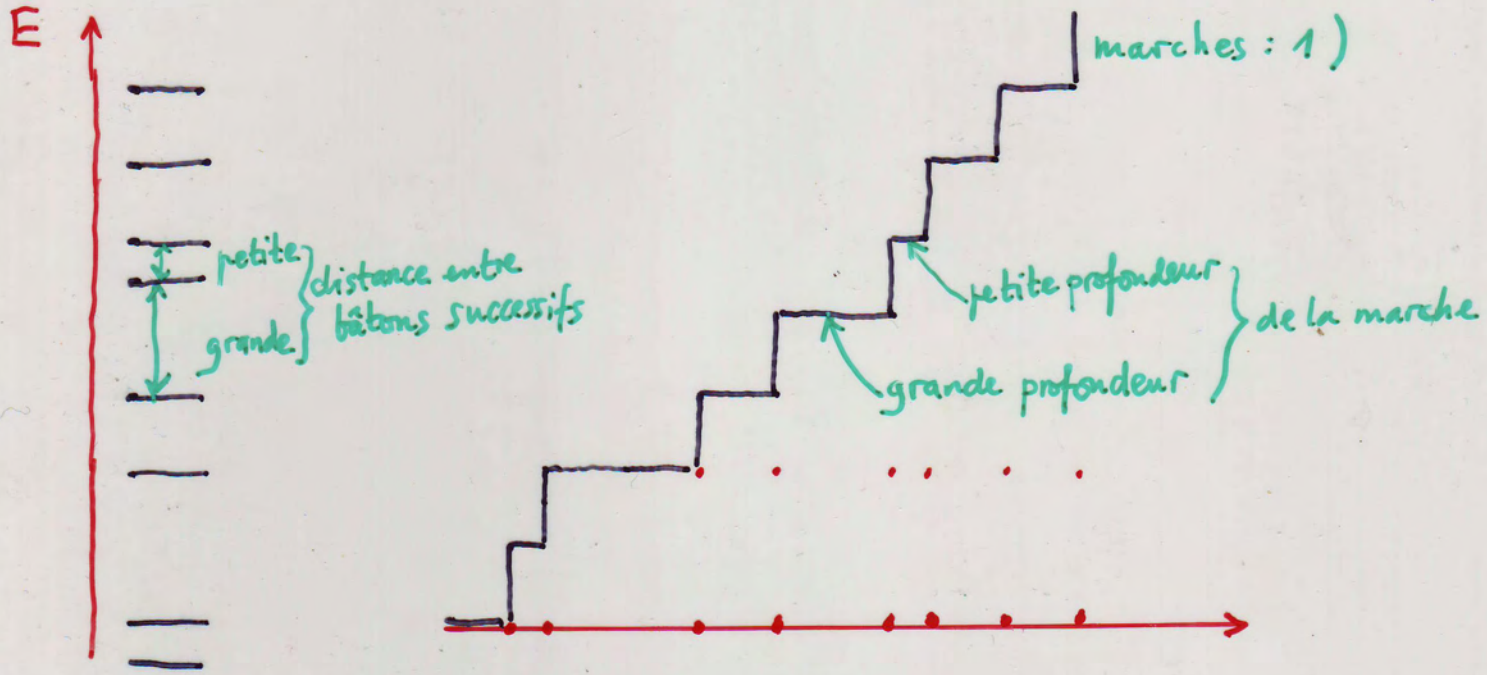 E
marches : 1)
petite
grande
distance entre
bâtons successifs
petite profondeur
grande profondeur
de la marche